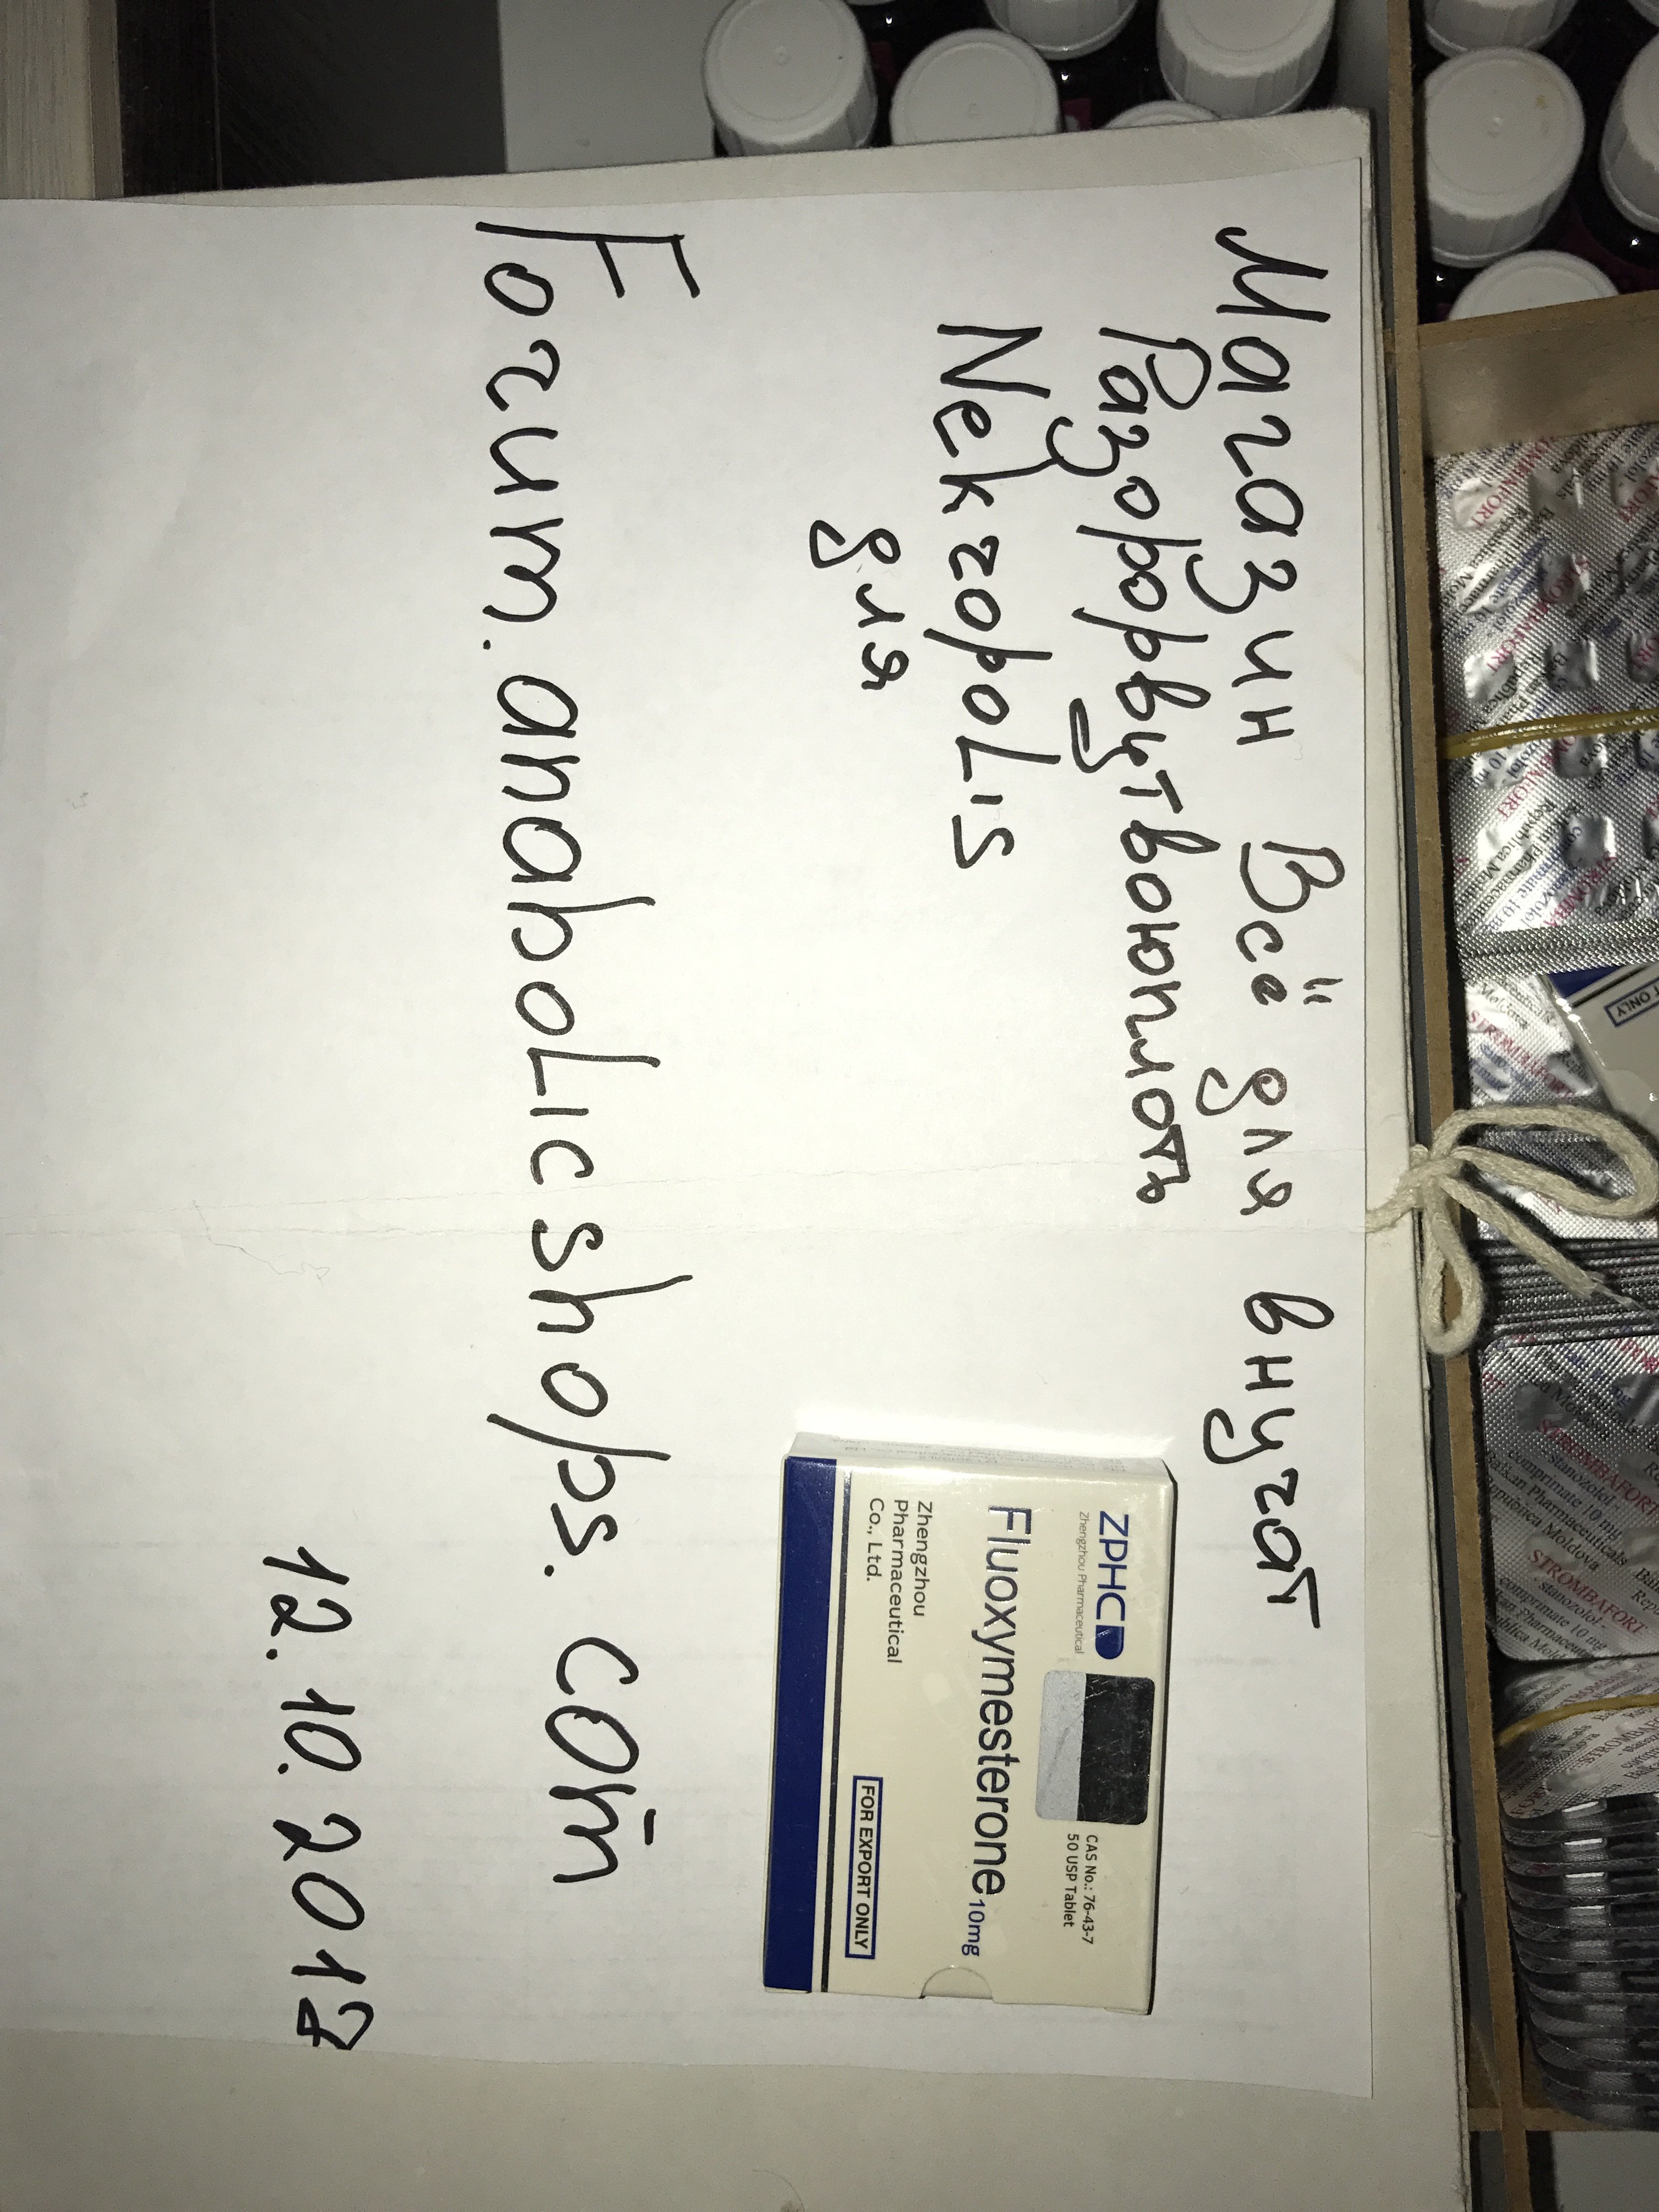 Магазин Всё для внучат
Разорврвутвоюплоть
Nekropolis
для
Forum.anabolicshops.com
12.10.2017
ZPHC
Zhengzhou Pharmaceutical
CAS No.: 76-43-7
50 USP Tablet
Fluoxymesterone 10mg
Zhengzhou
Pharmaceutical
Co., Ltd.
FOR EXPORT ONLY
STROMBAFORT
- stanozolol -
comprimate 10 mg
Balkan Pharmaceuticals
Republica Moldova
STROMBAFORT
- stanozolol -
comprimate 10 mg